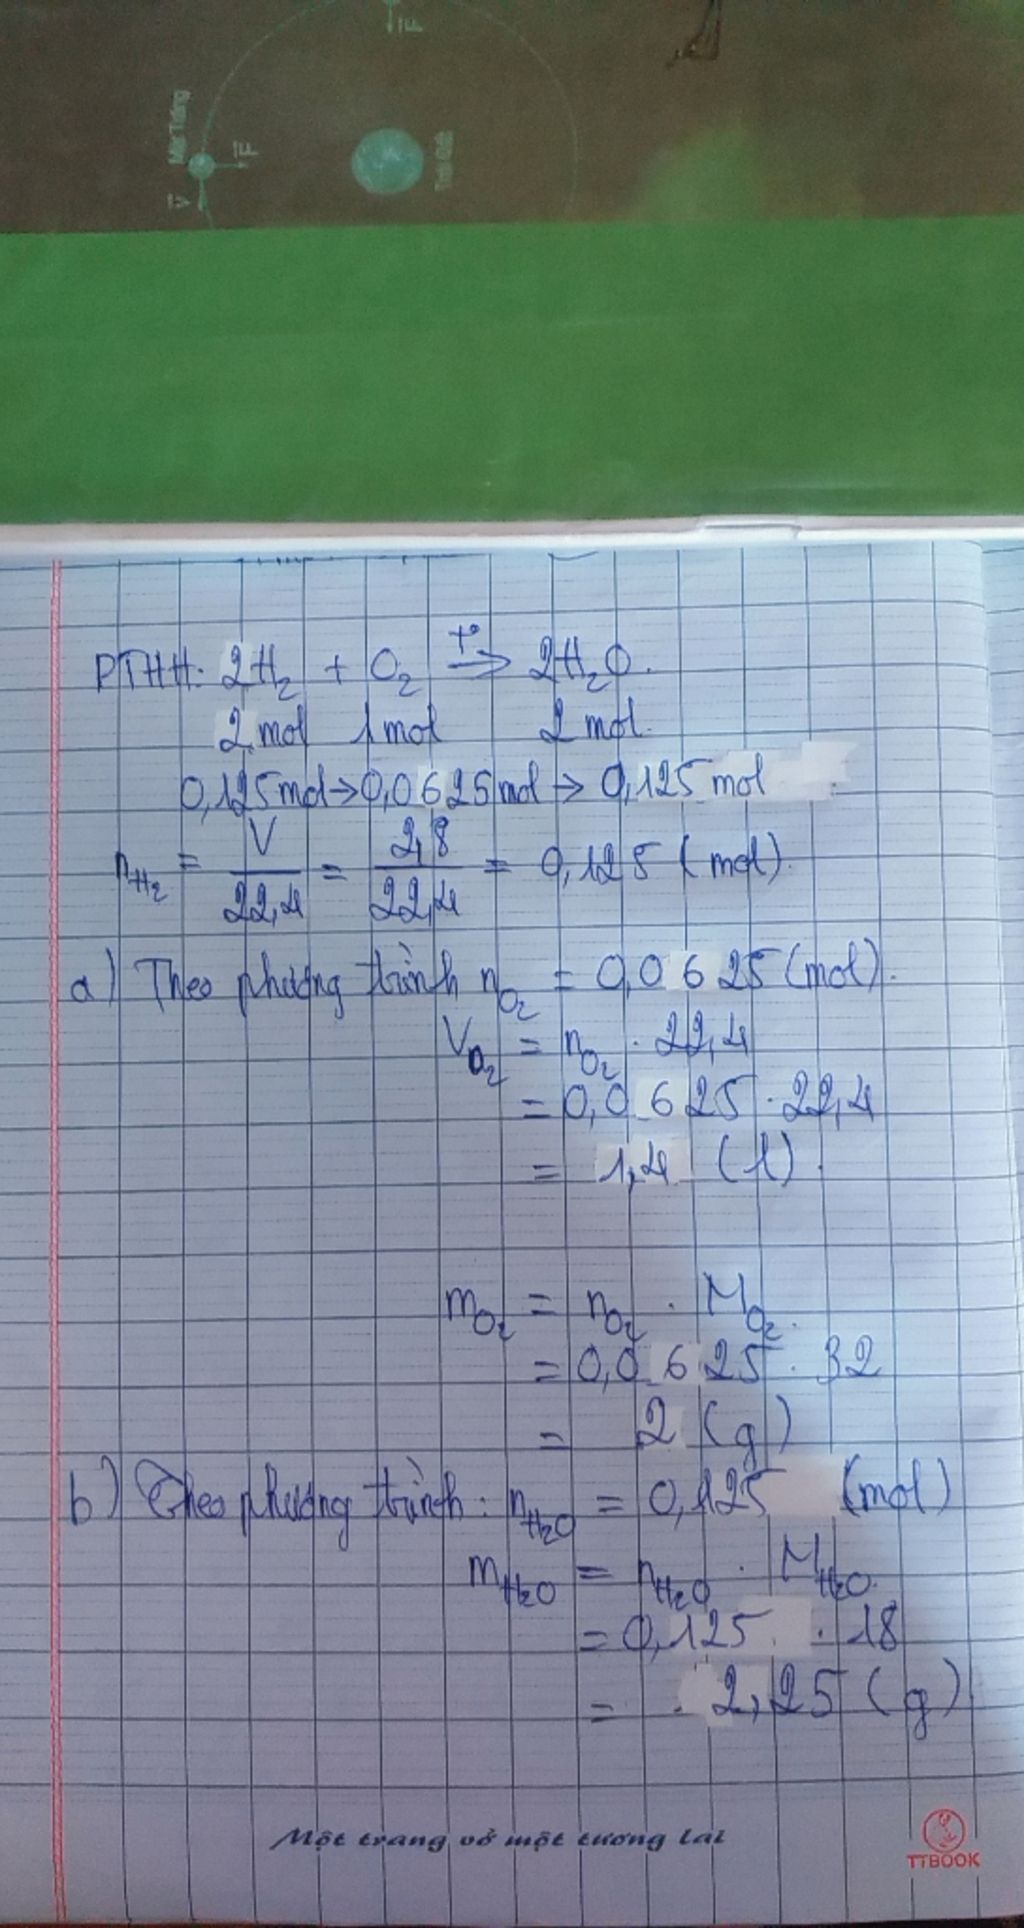 F
Mặt Trăng
F
V
Trái Đất
PTHH: 2H₂ + O₂ t° → 2H₂O.
2 mol 1 mol 2 mol.
0,125mol → 0,0625mol → 0,125 mol
nH₂ = V/22,4 = 2,8/22,4 = 0,125 (mol).
a) Theo phương trình nO₂ = 0,0625 (mol).
VO₂ = nO₂ . 22,4
= 0,0625 . 22,4
= 1,4 (l).
mO₂ = nO₂ . MO₂.
= 0,0625 . 32
= 2 (g)
b) Theo phương trình: nH₂O = 0,125 (mol)
mH₂O = nH₂O . MH₂O.
= 0,125 . 18
= 2,25 (g)
Một trang vở một tương lai
TTBOOK